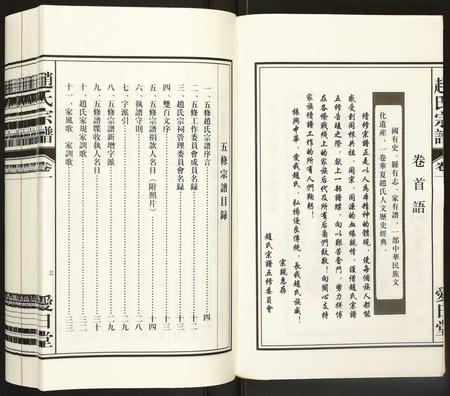 趙氏宗譜
卷一
愛日堂
卷首語
國有史，縣有志，家有譜，一部中華民族文
化遺産，一卷華夏趙氏人文歷史經典。
續修宗譜正是以人為本精神的體現，使每個族人都能
感受到同根共祖、同宗、同源的血緣親情。謹借趙氏宗譜
五修告竣之際，獻上一部譜牒，向以艱苦奮鬥、努力拼搏
在各條戰綫上的家族后代及所有后裔們致敬！向關心支持
家族續譜工作的所有人們鞠躬！
振興中華，愛我趙氏，弘揚優良傳統，長我趙氏族威！
宗親惠存
趙氏宗譜五修委員會
五修宗譜目録
一、五修趙氏宗譜序言 四
二、五修工作委員會成員名録
三、趙氏宗祠管理委員會名録 十二
四、雙百文序 十三
五、五修宗譜捐款人名目（附照片） 十四
六、執譜守則
七、字派引
八、五修宗譜新增字派 二九
九、五修譜牒收執人名目
十、趙氏家規家訓歌 三十
十一、家風歌 家訓歌 三三
趙氏宗譜
卷一
三
愛日堂